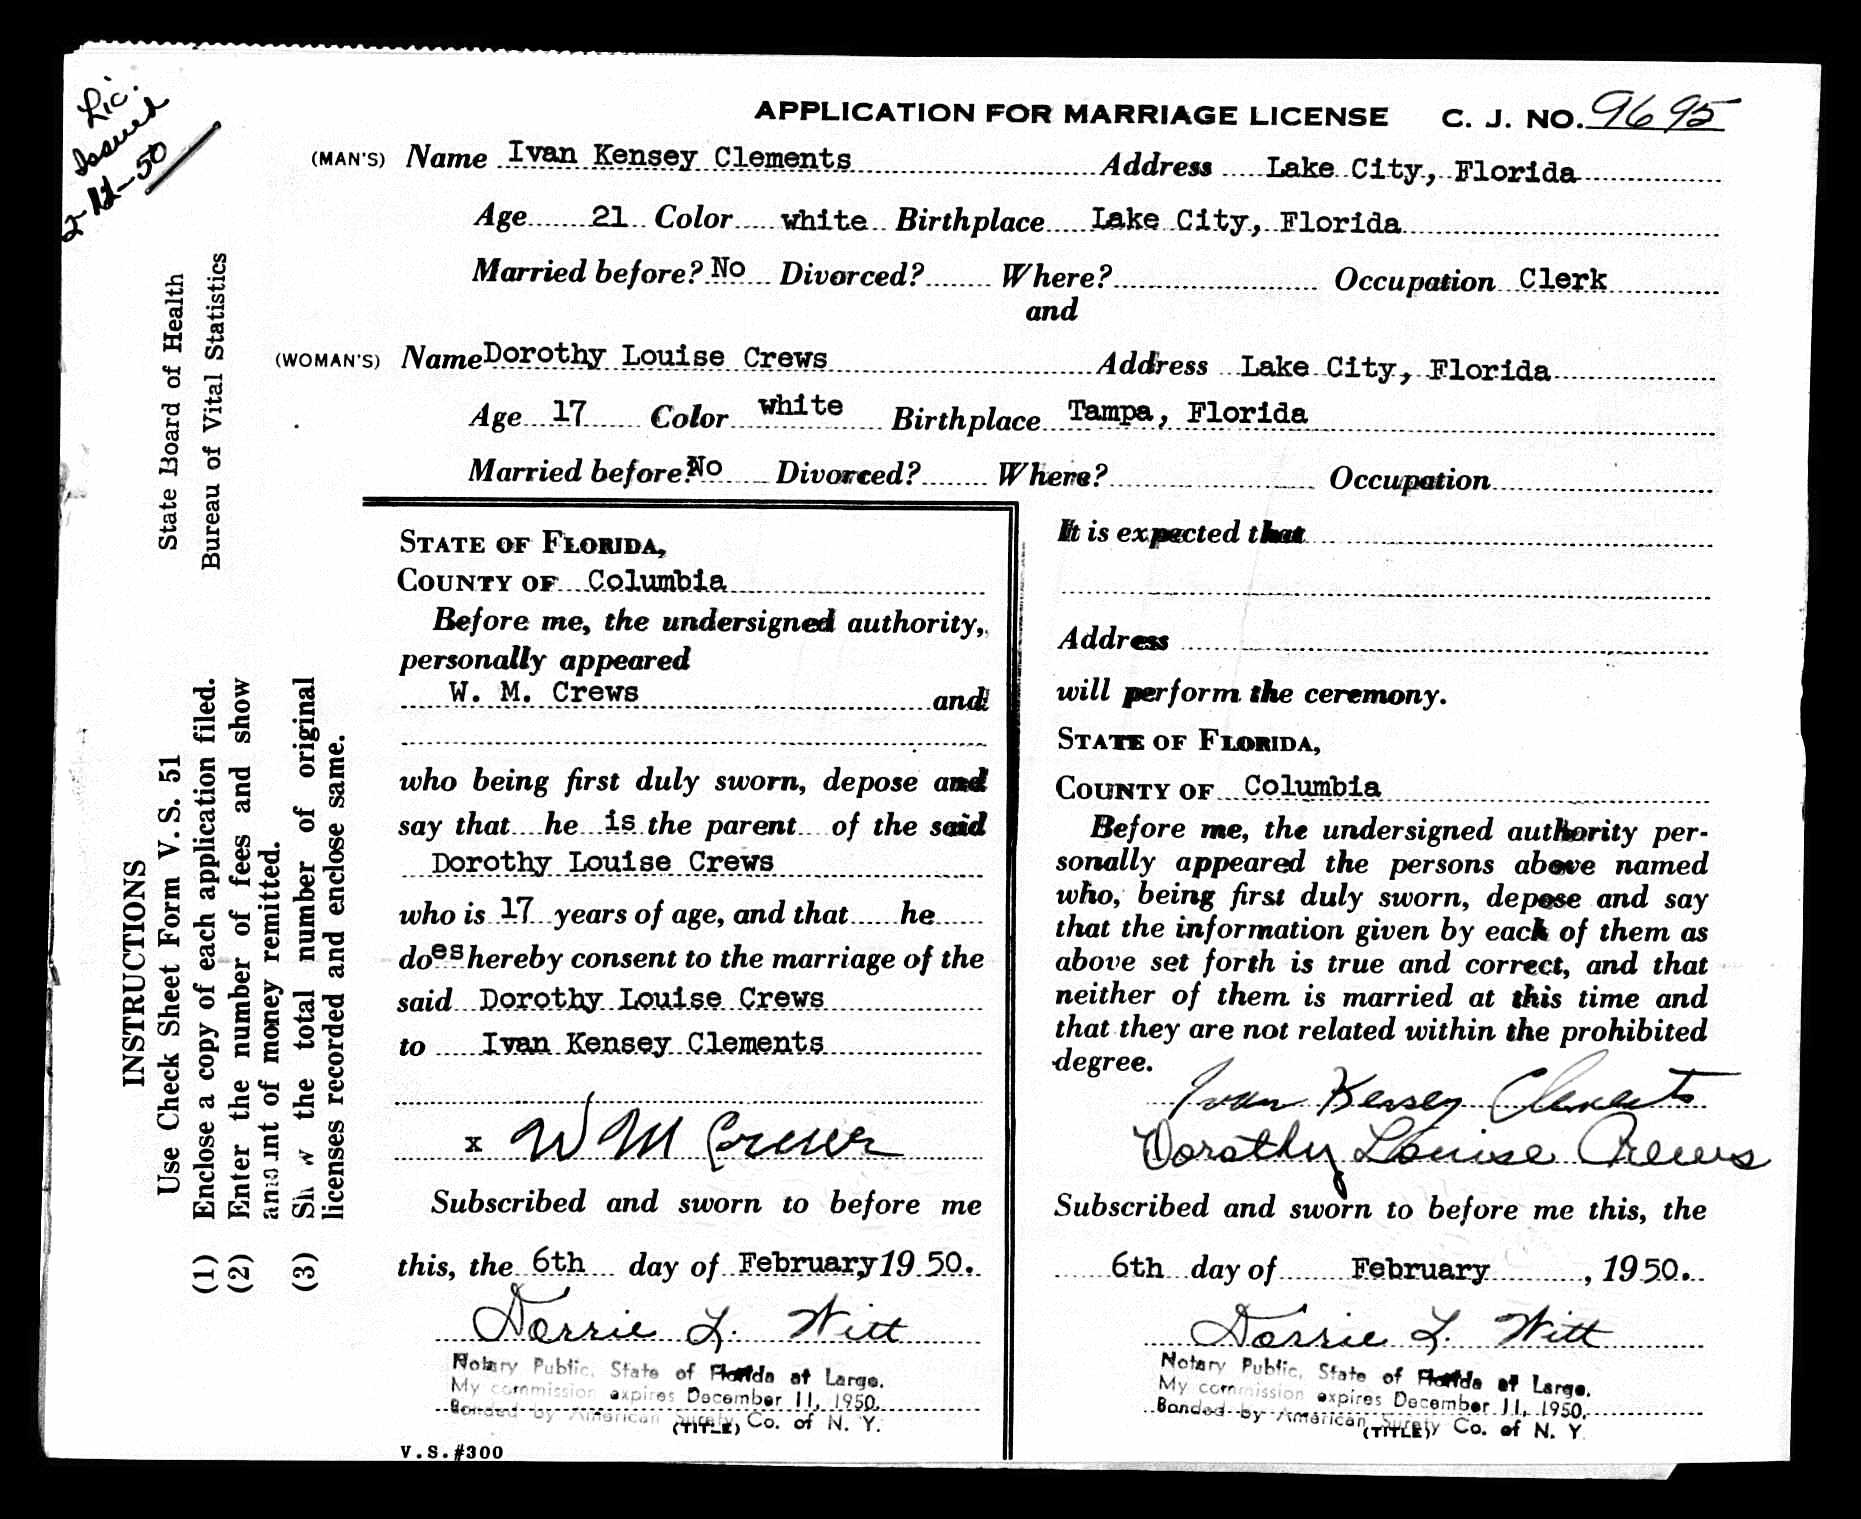 Lic.
Issued
2-11-50
APPLICATION FOR MARRIAGE LICENSE C. J. NO. 9695
(MAN'S) Name Ivan Kensey Clements Address Lake City, Florida
Age 21 Color white Birthplace Lake City, Florida
Married before? No Divorced? Where? Occupation Clerk
and
(WOMAN'S) Name Dorothy Louise Crews Address Lake City, Florida
Age 17 Color white Birthplace Tampa, Florida
Married before? No Divorced? Where? Occupation
State Board of Health
Bureau of Vital Statistics
INSTRUCTIONS
Use Check Sheet Form V. S. 51
(1) Enclose a copy of each application filed.
(2) Enter the number of fees and show
amount of money remitted.
(3) Show the total number of original
licenses recorded and enclose same.
STATE OF FLORIDA,
COUNTY OF Columbia
Before me, the undersigned authority,
personally appeared
W. M. Crews and
who being first duly sworn, depose and
say that he is the parent of the said
Dorothy Louise Crews
who is 17 years of age, and that he
does hereby consent to the marriage of the
said Dorothy Louise Crews
to Ivan Kensey Clements
x W M Crews
Subscribed and sworn to before me
this, the 6th day of February 19 50.
Dorrie L. Witt
Notary Public, State of Florida at Large.
My commission expires December 11, 1950.
Bonded by American Surety Co. of N. Y.
(TITLE)
V.S.#300
It is expected that
Address
will perform the ceremony.
STATE OF FLORIDA,
COUNTY OF Columbia
Before me, the undersigned authority per-
sonally appeared the persons above named
who, being first duly sworn, depose and say
that the information given by each of them as
above set forth is true and correct, and that
neither of them is married at this time and
that they are not related within the prohibited
degree.
Ivan Kensey Clements
Dorothy Louise Crews
Subscribed and sworn to before me this, the
6th day of February, 1950.
Dorrie L. Witt
Notary Public, State of Florida at Large.
My commission expires December 11, 1950.
Bonded by American Surety Co. of N. Y.
(TITLE)